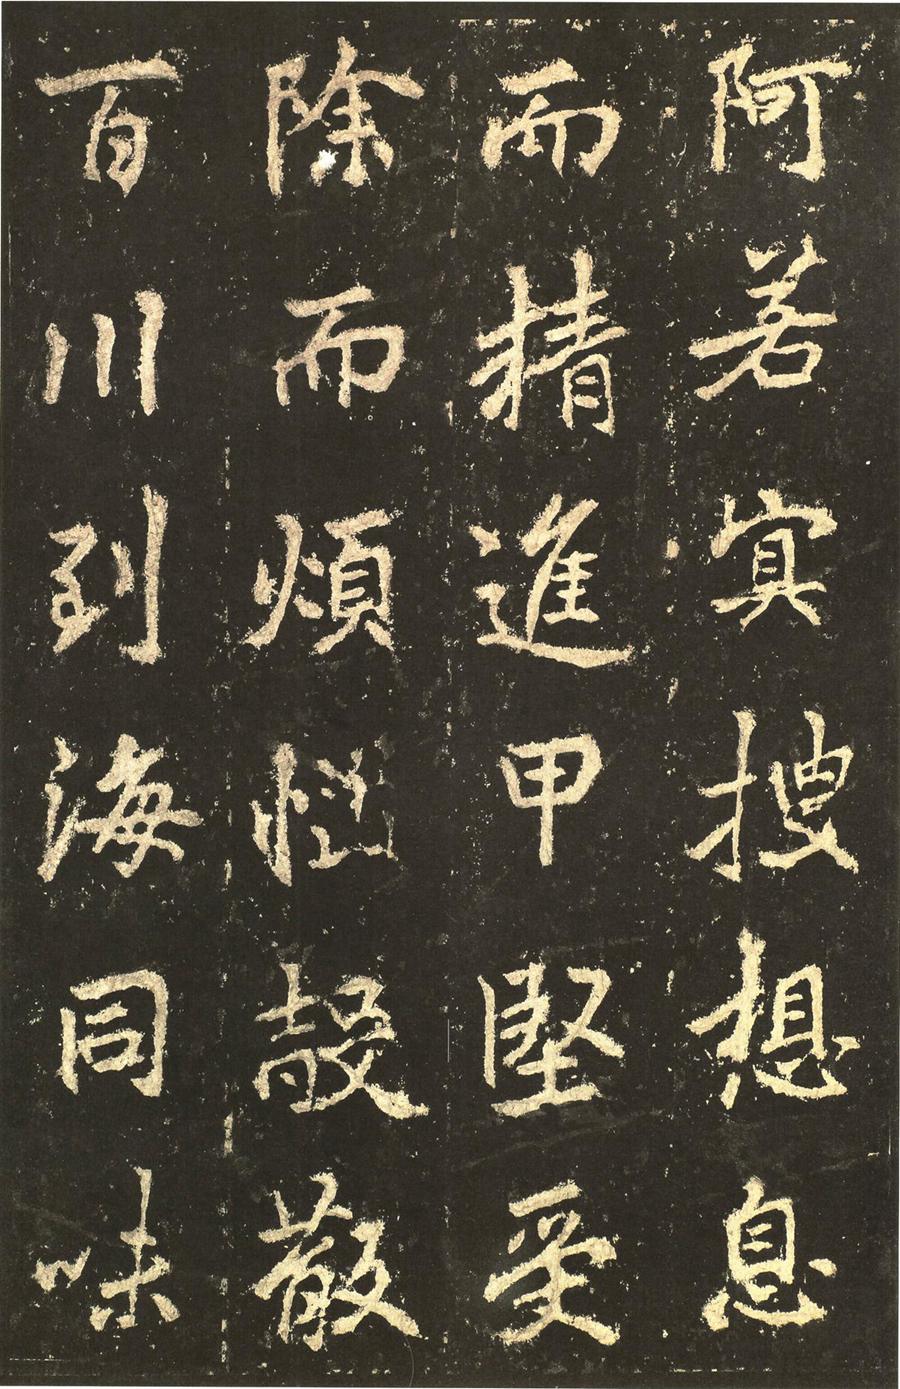 阿若冥搜想息
而精進甲堅受
除而煩惱殼散
百川到海同味